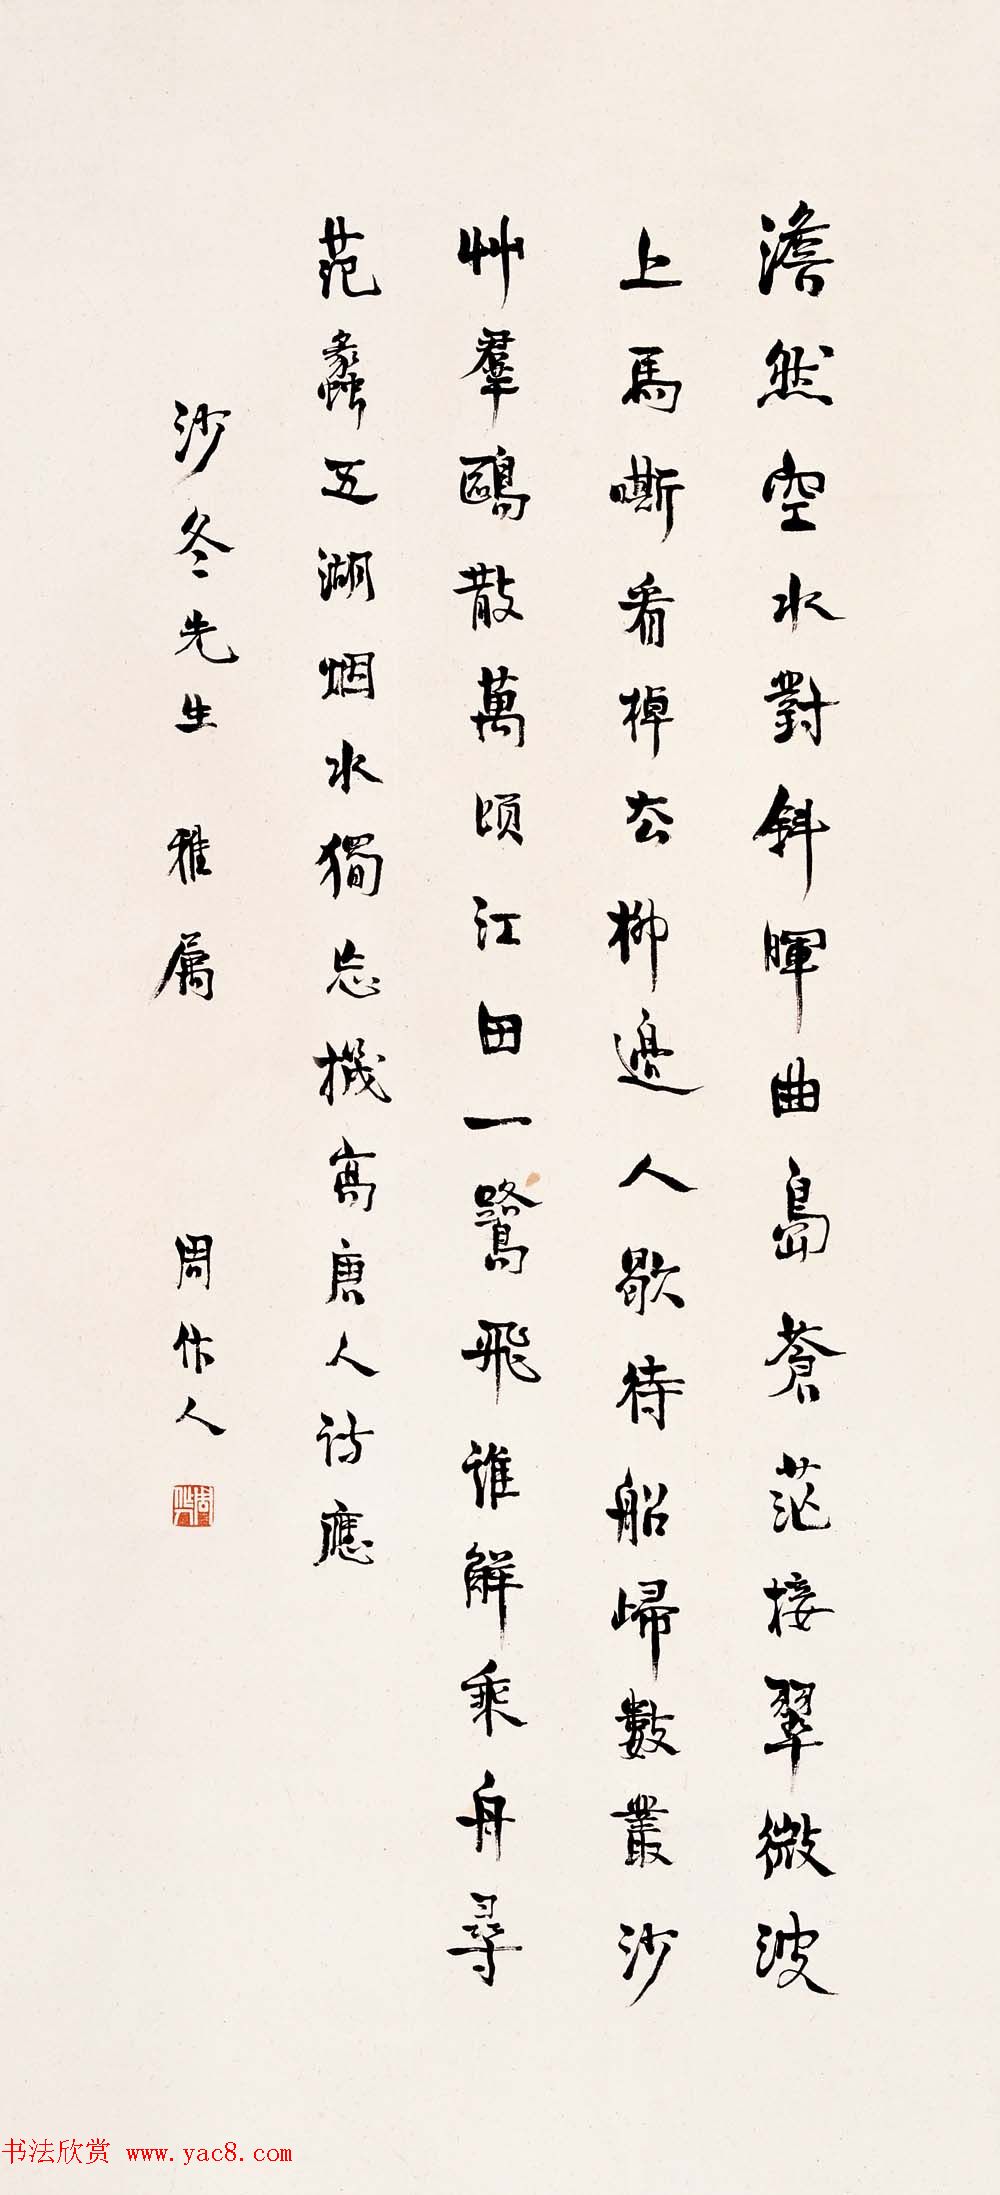 澹然空水對斜暉曲島蒼茫接翠微波
上馬嘶看棹去柳邊人歇待船歸數叢沙
艸羣鷗散萬頃江田一鷺飛誰解乘舟尋
范蠡五湖烟水獨忘機寫唐人詩應
沙冬先生 雅屬 周作人
书法欣赏 www.yac8.com